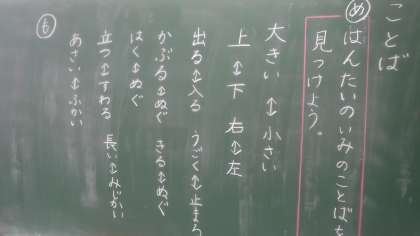 ことば
め はんたいのいみのことばを
見つけよう。
大きい ↕ 小さい
上 ↕ 下 右 ↕ 左
出る ↕ 入る うごく ↕ 止まる
かぶる ↕ ぬぐ きる ↕ ぬぐ
はく ↕ ぬぐ
立つ ↕ すわる 長い ↕ みじかい
あさい ↕ ふかい